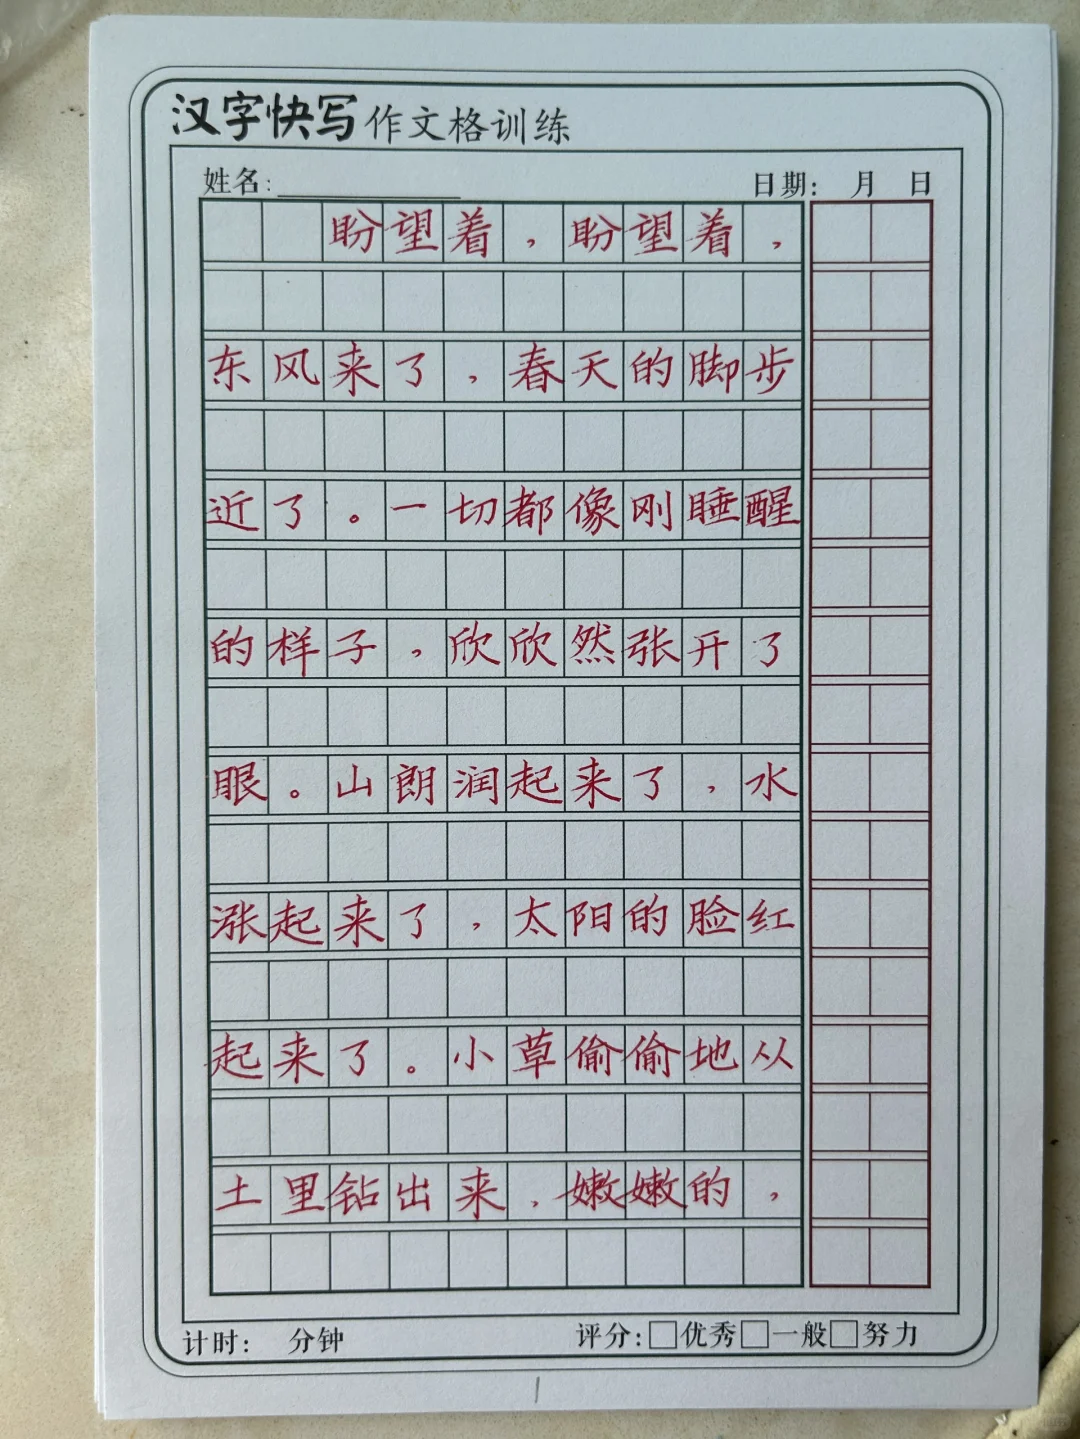 汉字快写作文格训练
姓名: 日期: 月 日
盼望着，盼望着，
东风来了，春天的脚步
近了。一切都像刚睡醒
的样子，欣欣然张开了
眼。山朗润起来了，水
涨起来了，太阳的脸红
起来了。小草偷偷地从
土里钻出来，嫩嫩的，
计时: 分钟 评分:□优秀□一般□努力